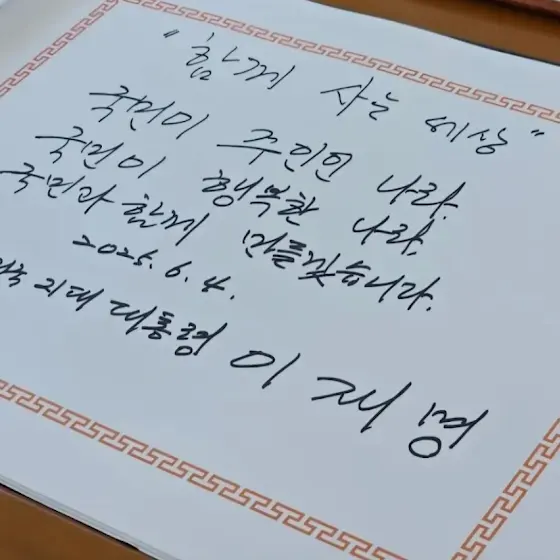 "함께 사는 세상"
국민이 주인인 나라,
국민이 행복한 나라,
국민과 함께 만들겠습니다.
2025. 6. 4.
21대 대통령 이재명